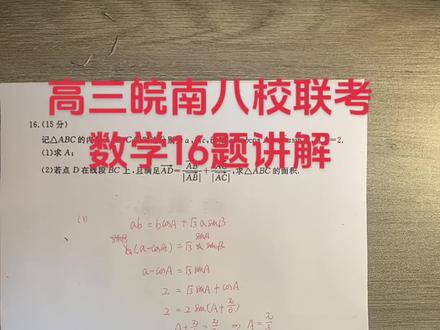 高三皖南八校联考
数学16题讲解
16.(15分)
记△ABC的内
=2.
(1)求A;
(2)若点D在线段BC上,且满足AD=AB/|AB|+AC/|AC|,求△ABC的面积.
(1)
ab = bcosA + √3 asinB
(a-cosA)=√3
a-cosA = √3 sinA
2 = √3 sinA + cosA
2 = 2 sin(A+π/6)
A+π/6=π/2 ⇒ A=π/3